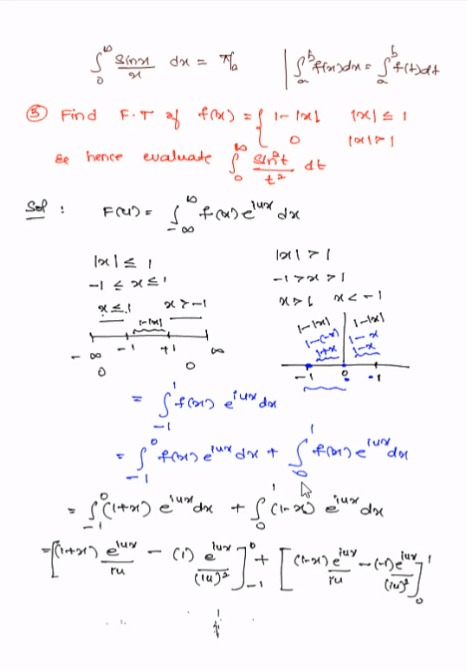 ∫₀^∞ sinx/x dx = π/2 | ∫ₐᵇ f(x)dx = ∫ₐᵇ f(t)dt
③ Find F.T of f(x) = { 1-|x| |x| ≤ 1
0 |x| > 1
& hence evaluate ∫₀^∞ sin²t/t² dt
Sol : F(u) = ∫₋∞^∞ f(x) e^{iux} dx
|x| ≤ 1 |x| > 1
-1 ≤ x ≤ 1 -1 > x > 1
x ≤ 1 x > -1 x > 1 x < -1
1-|x| 1-|x| 1-|x|
1-(-x) 1-x
1+x 1-x
-∞ -1 +1 ∞ -1 0 -1
0 0
= ∫₋₁¹ f(x) e^{iux} dx
= ∫₋₁⁰ f(x) e^{iux} dx + ∫₀¹ f(x) e^{iux} dx
= ∫₋₁⁰ (1+x) e^{iux} dx + ∫₀¹ (1-x) e^{iux} dx
= [(1+x) e^{iux}/iu - (1) e^{iux}/(iu)²]₋₁⁰ + [(1-x) e^{iux}/iu - (-1) e^{iux}/(iu)²]₀¹